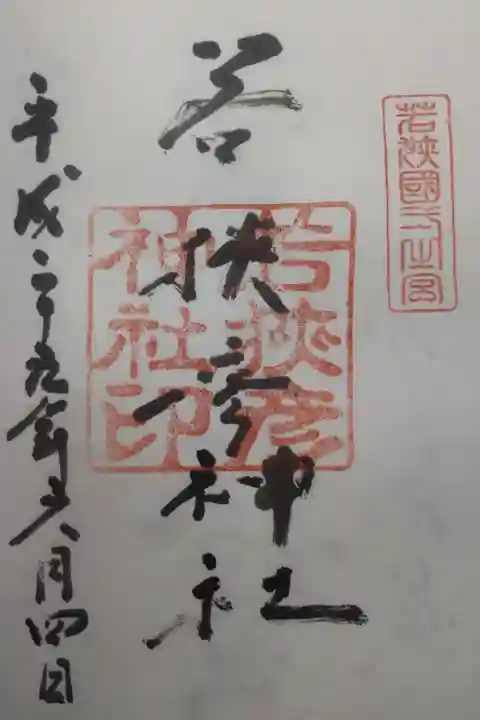 若狹國一之宮
若狭彦神社
若狹彦神社印
平成二十九年六月四日